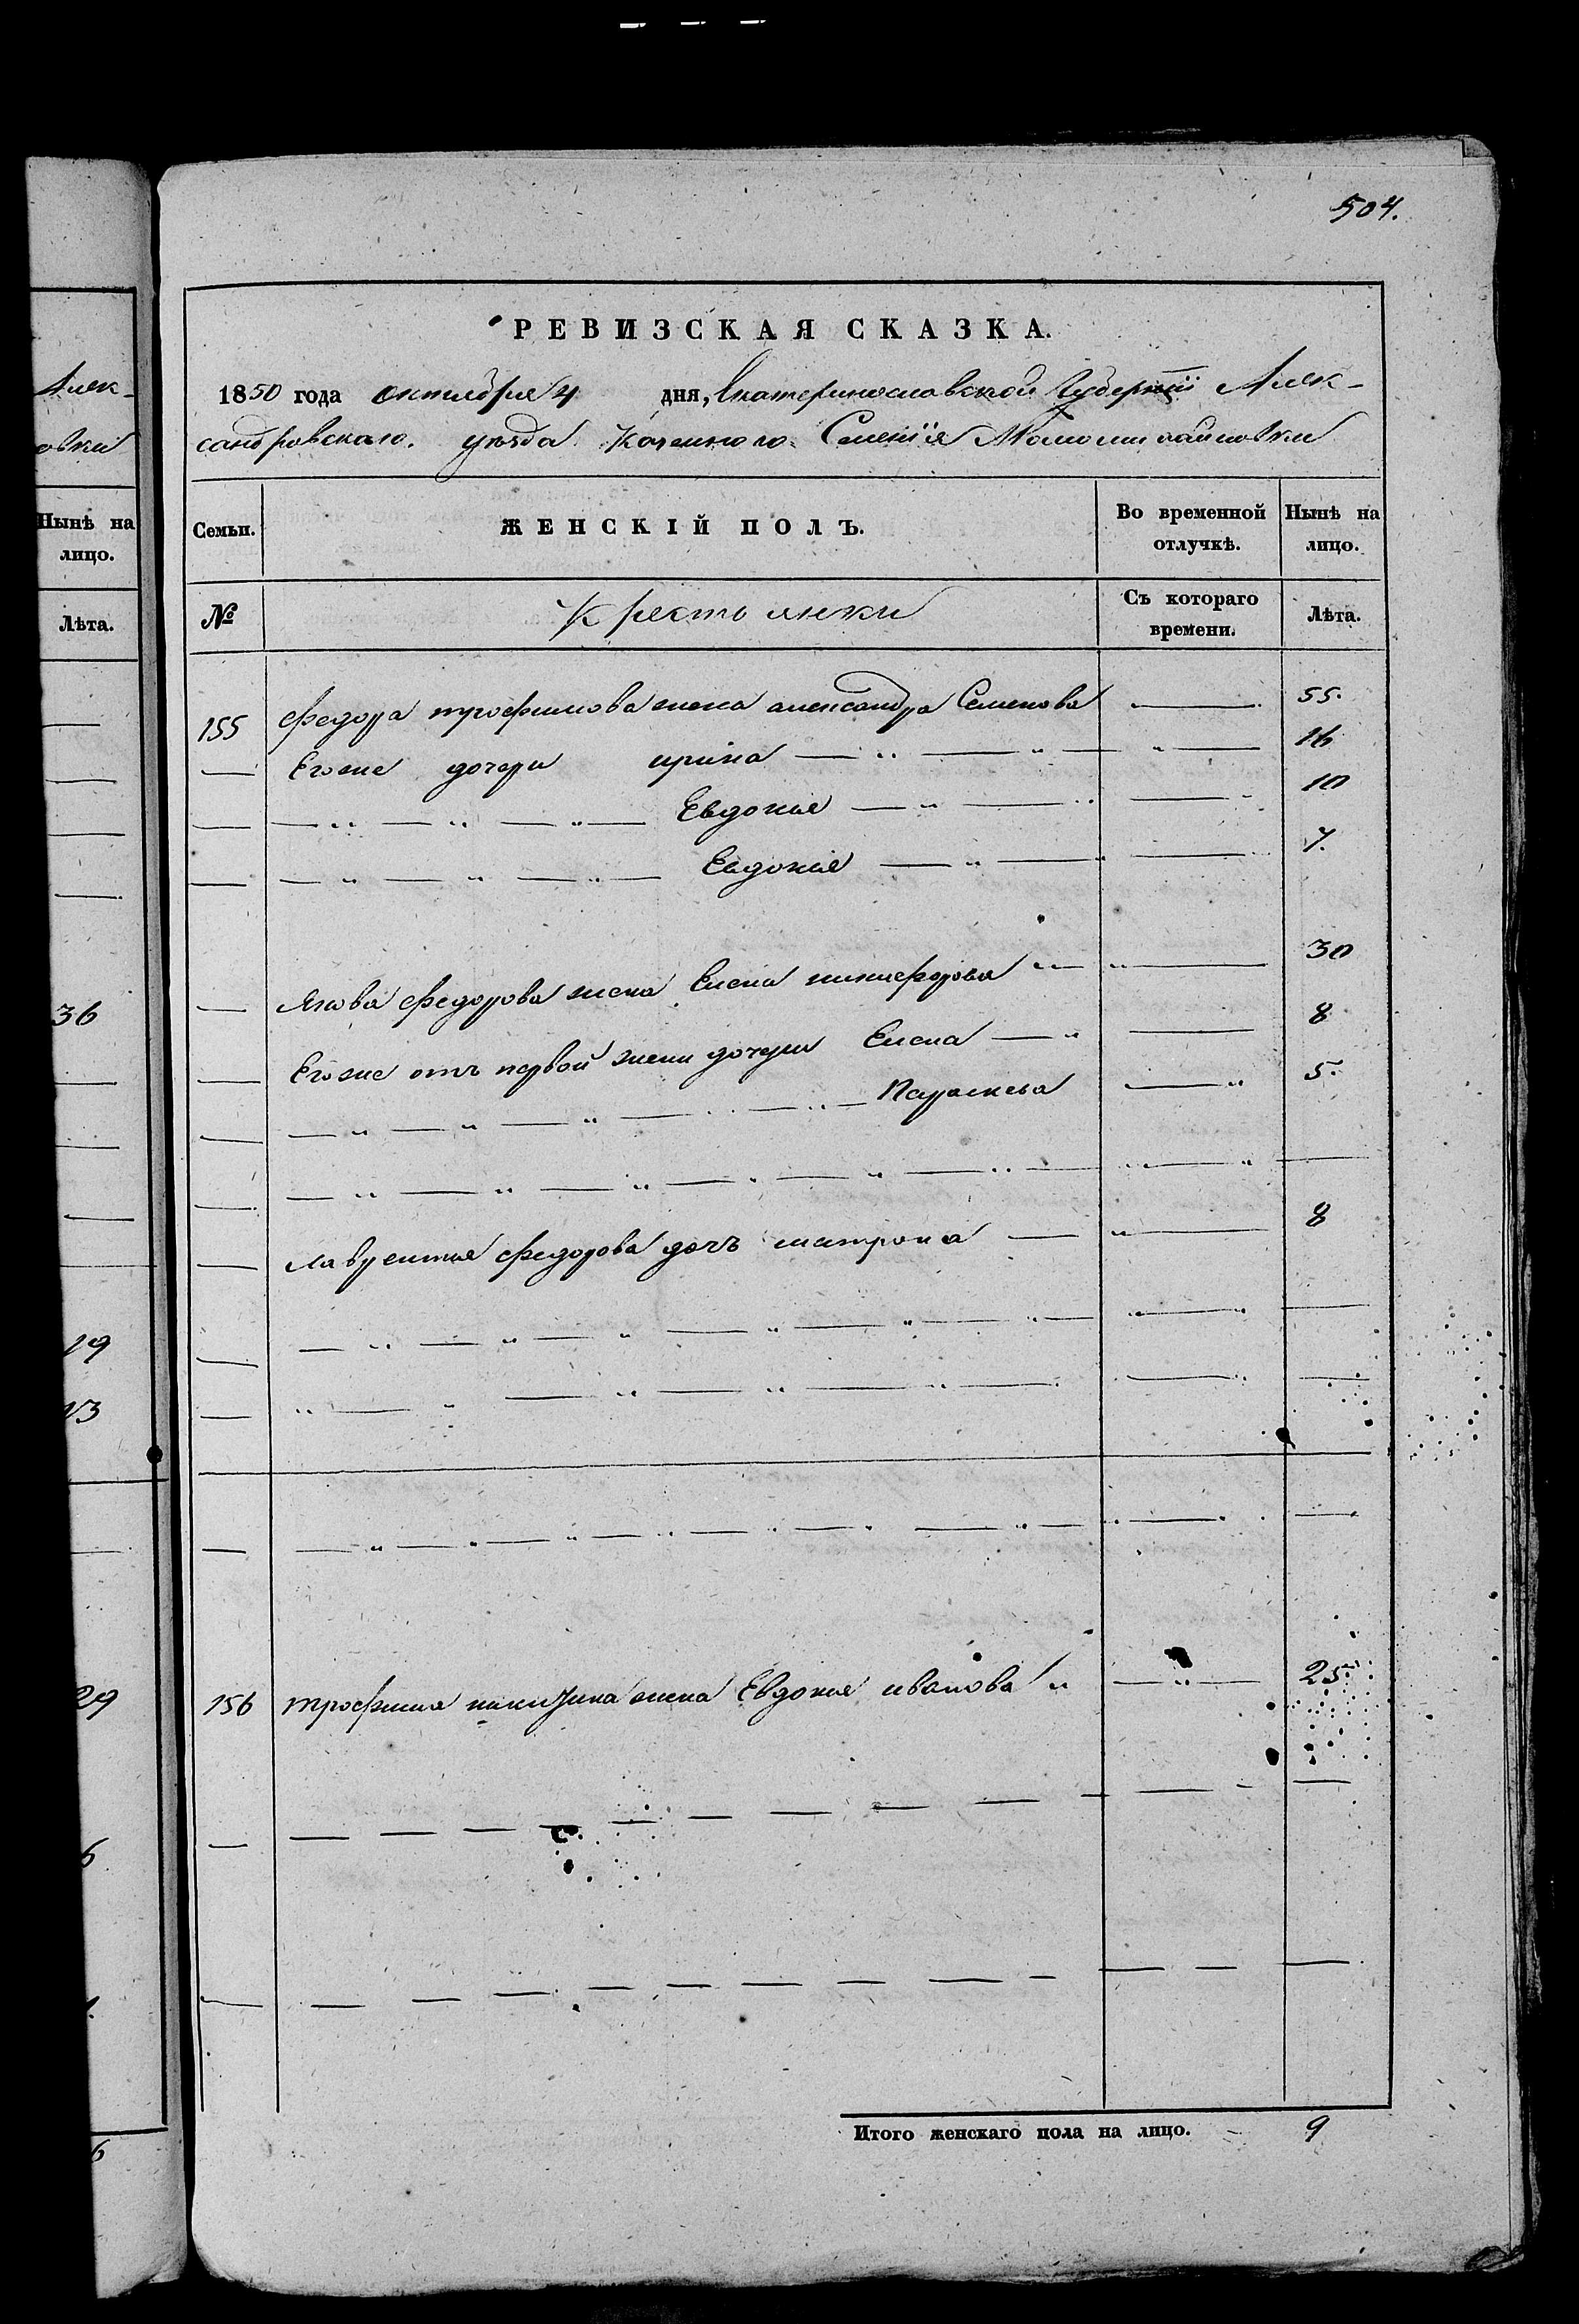 504.
РЕВИЗСКАЯ СКАЗКА.
1850 года октября 4 дня, Екатеринославской Губерніи Алек-
сандровскаго. уезда Казенного Селенія
Семьи. ЖЕНСКІЙ ПОЛЪ. Во временной отлучкѣ. Нынѣ на лицо.
№ Крестьянки Съ котораго времени. Лѣта.
155 Федора трофимова жена александра Семенова — 55.
— Егоже дочери ирина — " — " — " — 16
— — " — " — " — Евдокия — " — " — 10
— — " — " — " — Евдокия — " — " — 7.
— Якова федорова жена Елена никифорова " — " — 30
— Егоже отъ первой жени дочери Елена — " — 8
— — " — " — " — " — " — Параскева — " 5.
— — " — " — " — " — " — " — " — " —
— лаврентия федорова дочъ матрона — " — 8
— — " — " — " — " — " — " — " — " —
— " — " — " — " — " — " — " —
— — " — " — " — " — " — " — " — " —
156 трофима никитина жена Евдокия иванова " — " — 25.
— — — — — — — — — — — — —
— — — — — — — — — — — — —
Итого женскаго пола на лицо. 9
Алек-
овки
Нынѣ на
лицо.
Лѣта.
36
19
13
29
6
6